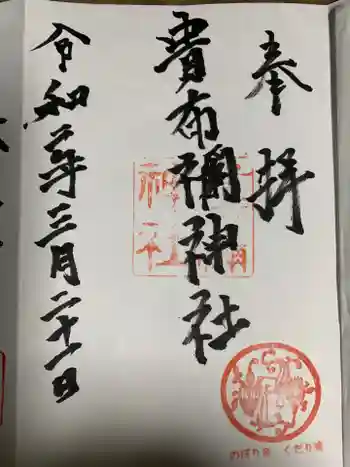 奉拝
貴布禰神社
令和二年三月二十一日
のぼり くだり